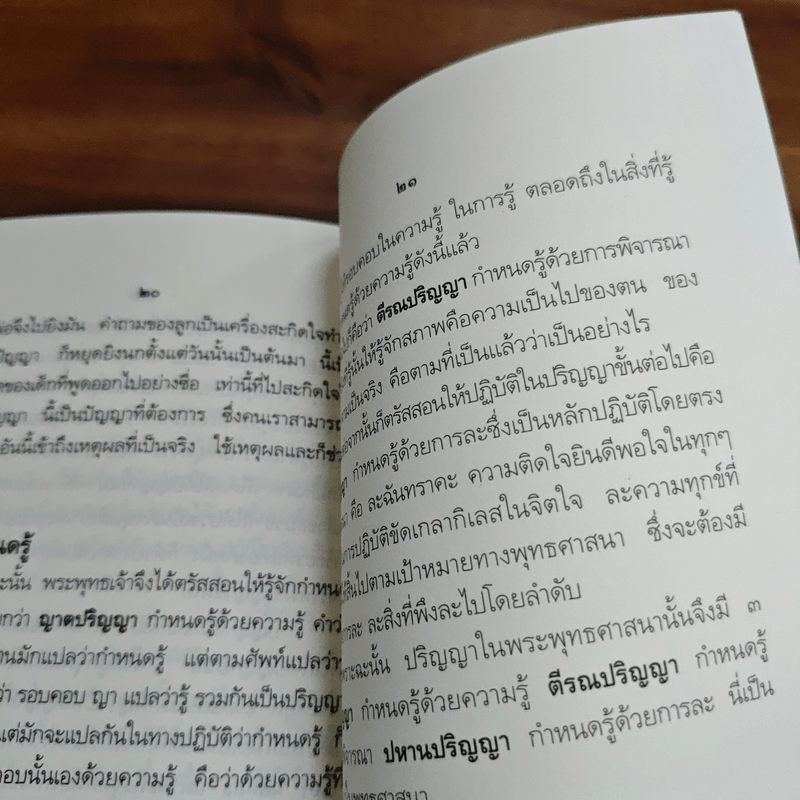 ๒๐
จึงไปยิงมัน คำถามของลูกเป็นเครื่องสะกิดใจ
ปัญญา ก็หยุดยิงนกตั้งแต่วันนั้นเป็นต้นมา
ของเด็กที่พูดออกไปอย่างซื่อ เท่านี้ที่ไปสะกิดใจ
นี้เป็นปัญญาที่ต้องการ ซึ่งคนเราสามารถ
อันนี้เข้าถึงเหตุผลที่เป็นจริง ใช้เหตุผลและก็
ฉะนั้น พระพุทธเจ้าจึงได้ตรัสสอนให้รู้จักกำหนด
ว่า ญาตปริญญา กำหนดรู้ด้วยความรู้ คำว่า
มักแปลว่ากำหนดรู้ แต่ตามศัพท์แปลว่า
ว่า รอบคอบ ญา แปลว่ารู้ รวมกันเป็นปริญญา
แต่มักจะแปลกันในทางปฏิบัติว่ากำหนดรู้
นั้นเองด้วยความรู้ คือว่าด้วยความรู้ที่
๒๑
ในความรู้ ในการรู้ ตลอดถึงในสิ่งที่รู้
รู้ด้วยความรู้ดังนี้แล้ว
ก็คือว่า ตีรณปริญญา กำหนดรู้ด้วยการพิจารณา
รู้นั้นให้รู้จักสภาพคือความเป็นไปของตน ของ
เป็นจริง คือตามที่เป็นแล้วว่าเป็นอย่างไร
จากนั้นก็ตรัสสอนให้ปฏิบัติในปริญญาขั้นต่อไปคือ
กำหนดรู้ด้วยการละซึ่งเป็นหลักปฏิบัติโดยตรง
คือ ละฉันทราคะ ความติดใจยินดีพอใจในทุกๆ
การปฏิบัติขัดเกลากิเลสในจิตใจ ละความทุกข์ที่
สิ้นไปตามเป้าหมายทางพุทธศาสนา ซึ่งจะต้องมี
การละ ละสิ่งที่พึงละไปโดยลำดับ
เพราะฉะนั้น ปริญญาในพระพุทธศาสนานั้นจึงมี ๓
กำหนดรู้ด้วยความรู้ ตีรณปริญญา กำหนดรู้
ปหานปริญญา กำหนดรู้ด้วยการละ นี่เป็น